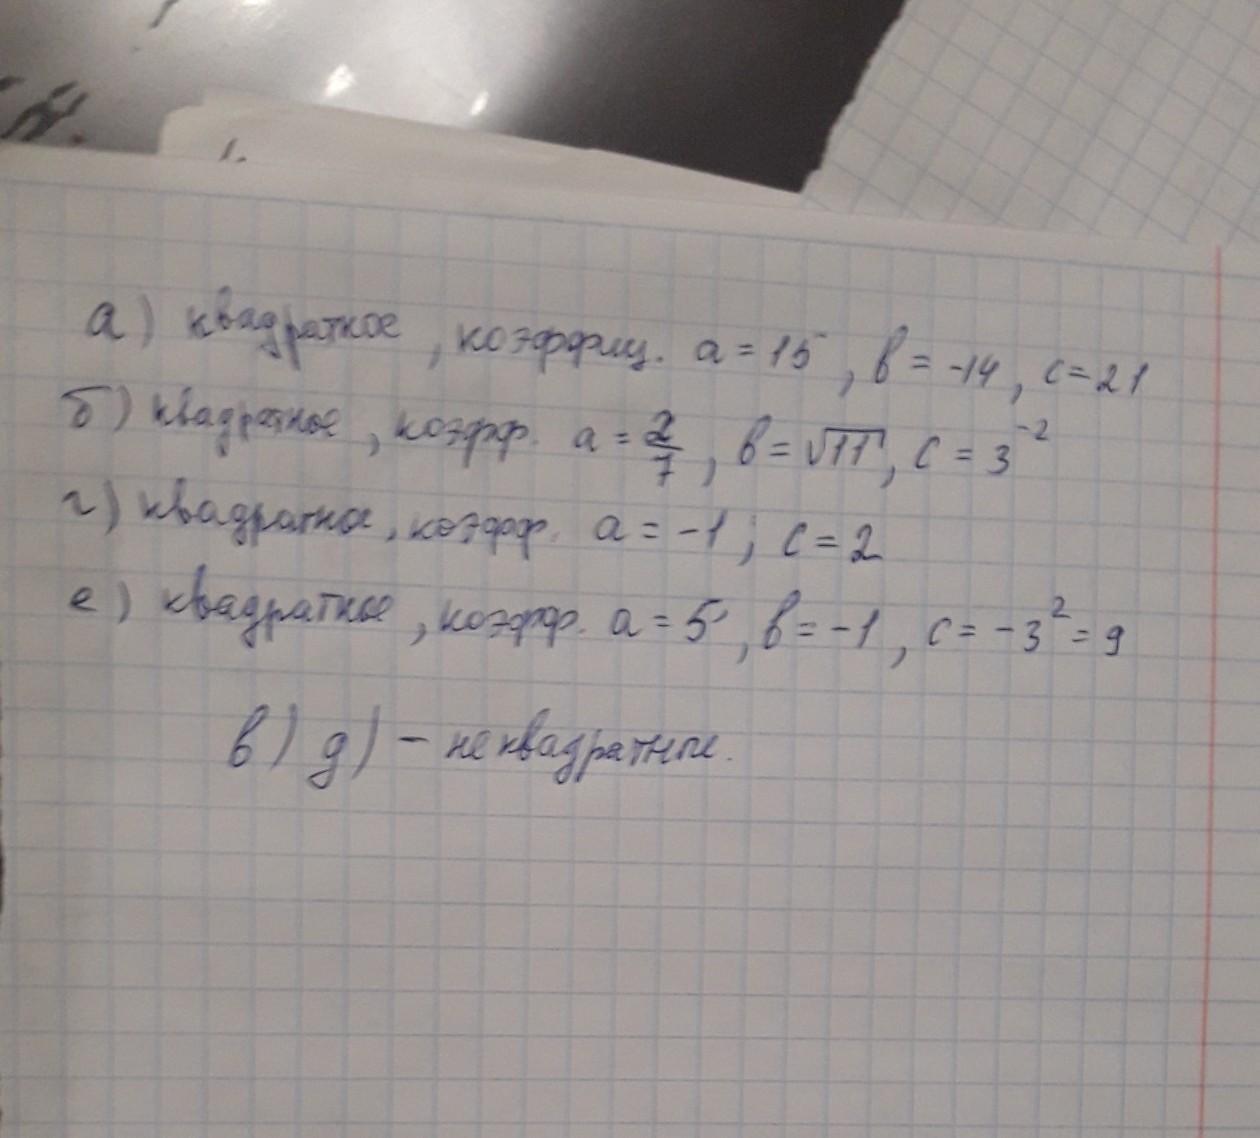 а) квадратное, коэффиц. a = 15, b = -14, c = 21
б) квадратное, коэфф. a = 2/7, b = √11, c = 3⁻²
г) квадратное, коэфф. a = -1; c = 2
е) квадратное, коэфф. a = 5, b = -1, c = -3² = 9
в) д) - не квадратные.